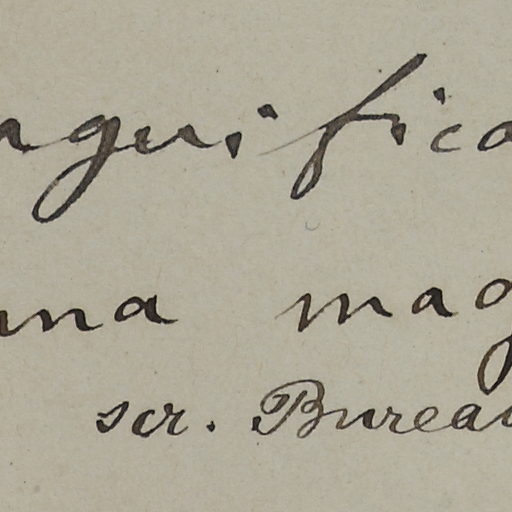 ngui fica
una mag
scr. Bureau